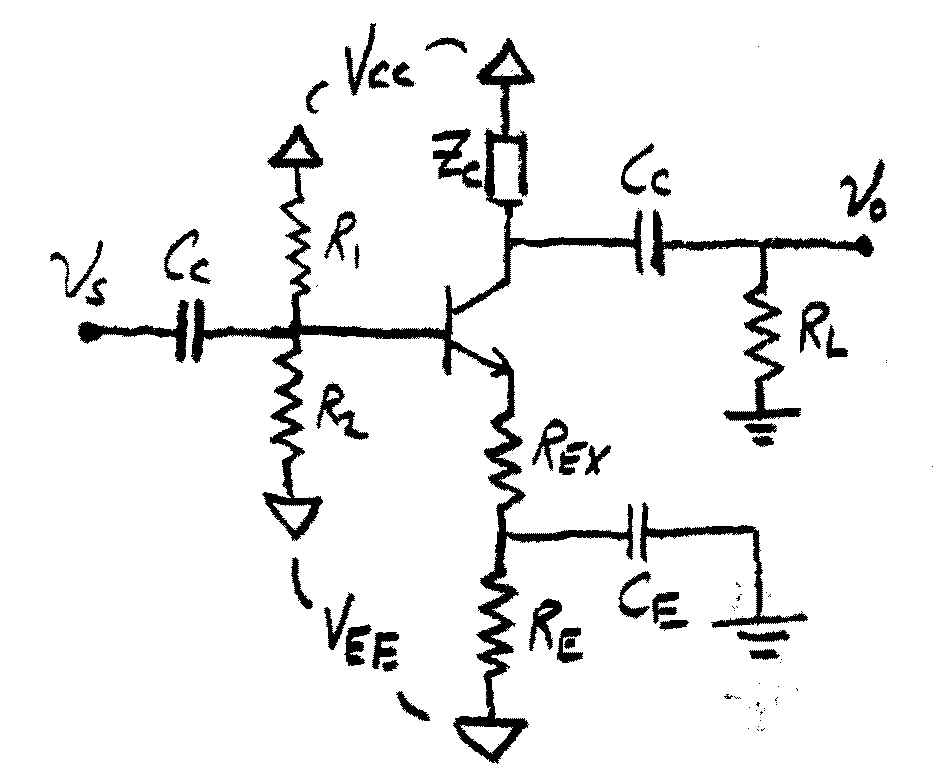 Vcc
Zc
Cc
vo
R1
vs
Cc
RL
R2
REX
CE
RE
VEE